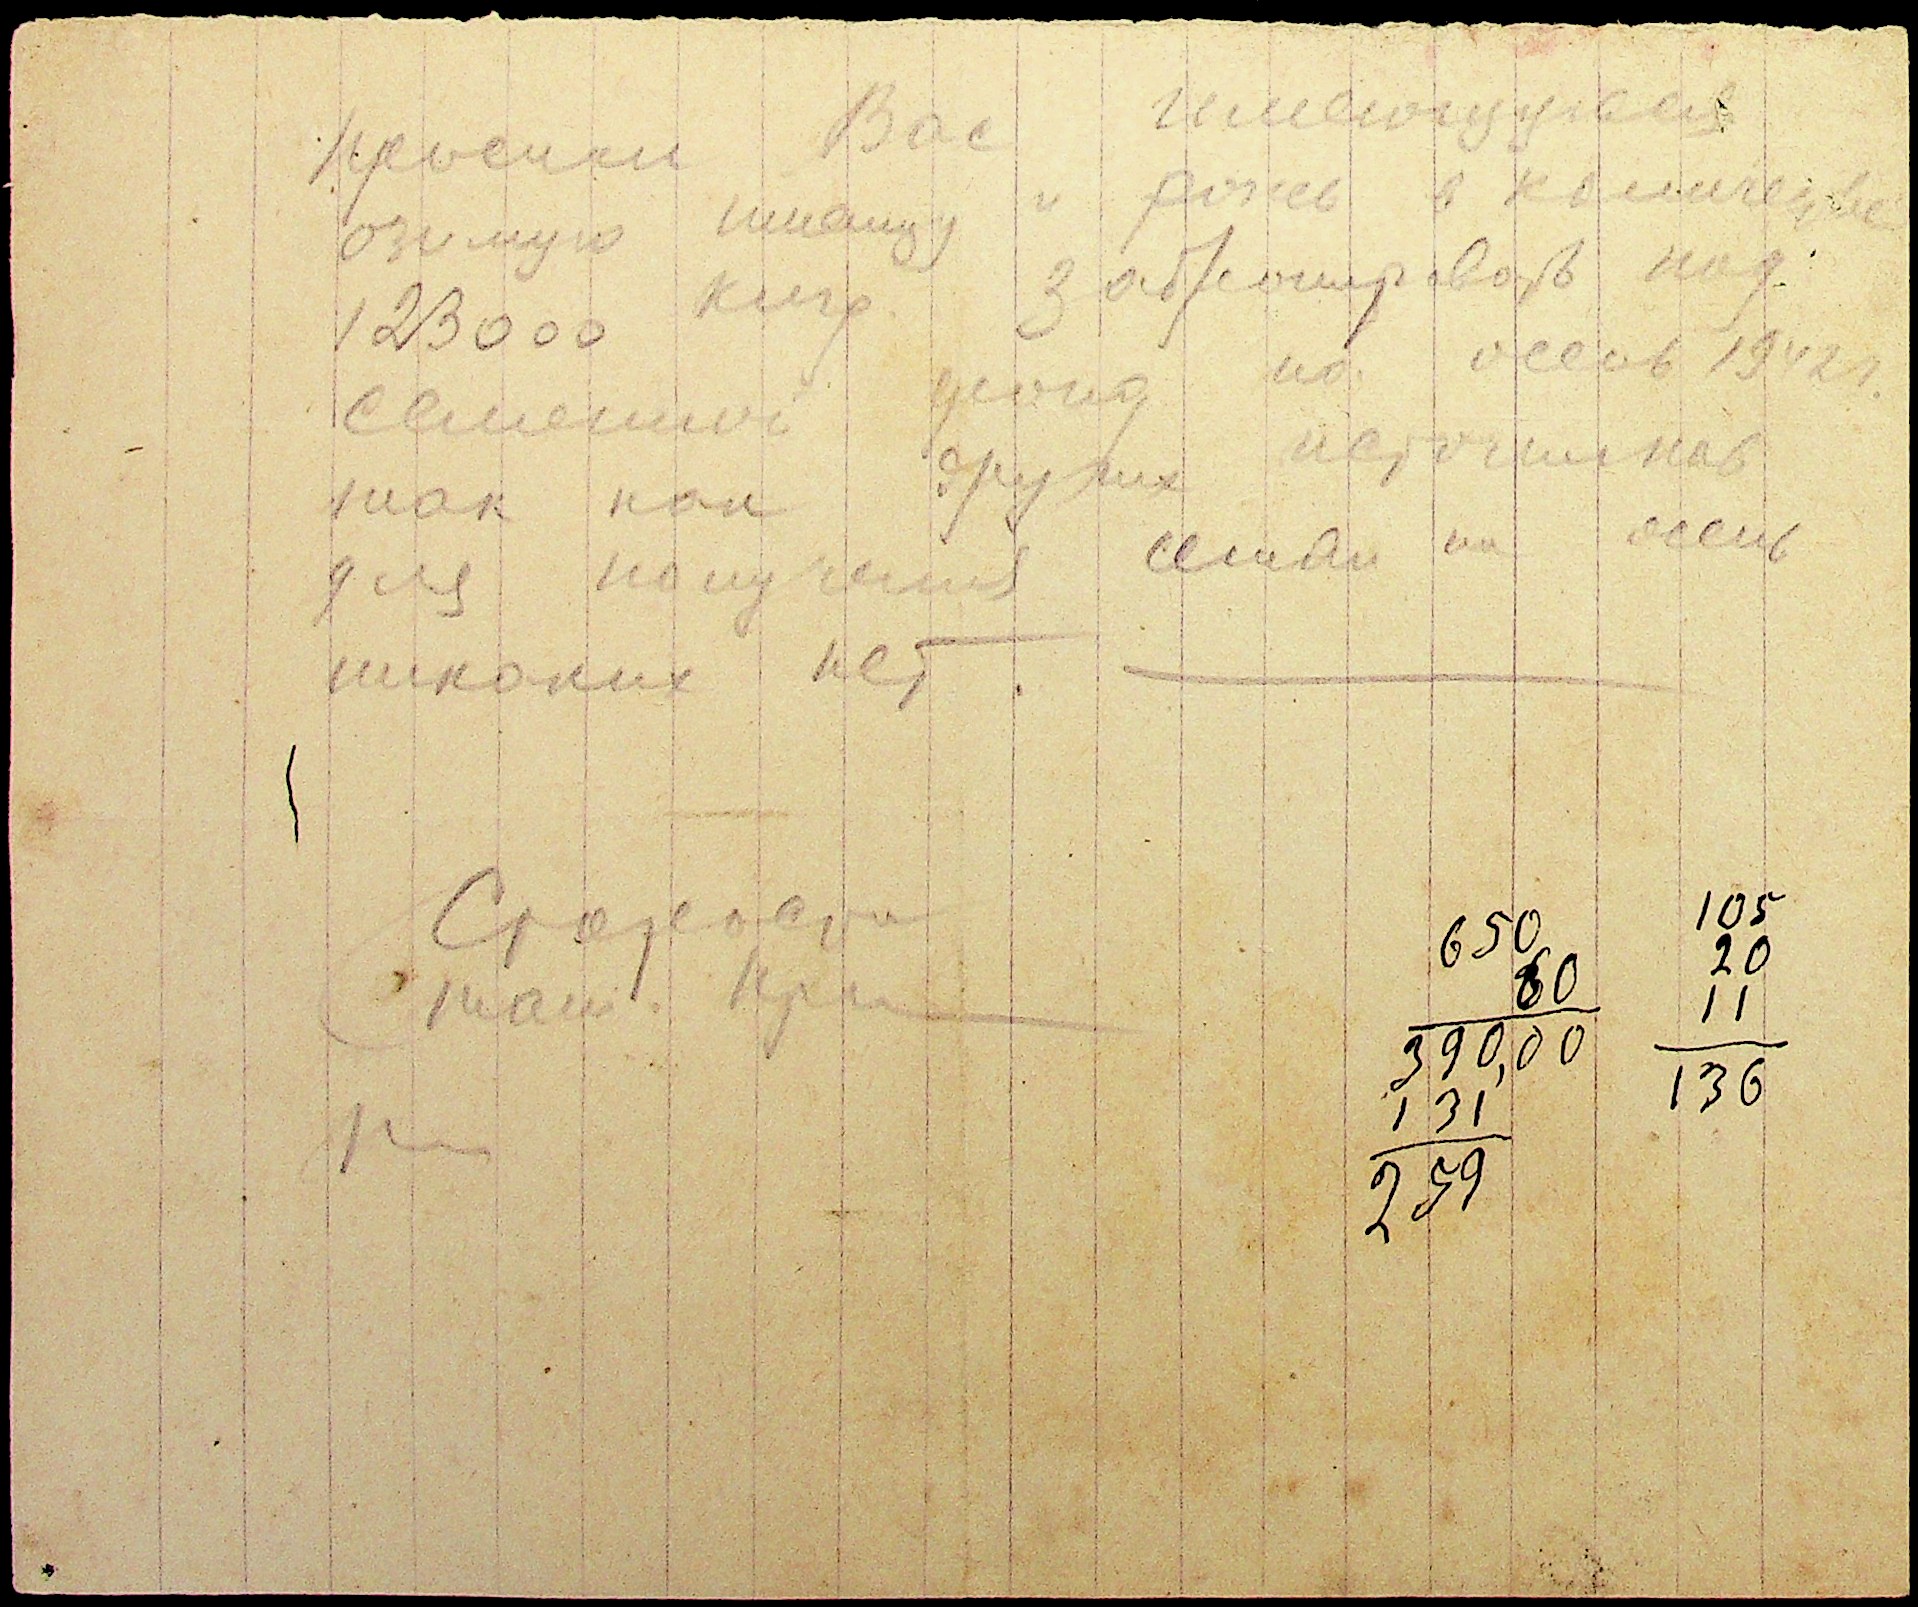 Просим Вас имеющуюся
озимую пшеницу и рожь в количестве
123000 клгр. Забронировать под
семенной фонд на осень 1942 г.
так как других источников
для получения семян на осень
никаких нет.
650
60
390,00
131
259
105
20
11
136